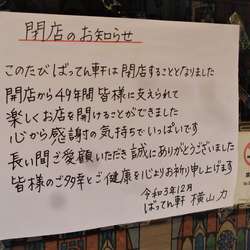 閉店のお知らせ
このたびばってん軒は閉店することとなりました
開店から49年間皆様に支えられて
楽しくお店を開けることができました
心から感謝の気持ちでいっぱいです
長い間ご愛顧いただき誠にありがとうございました
皆様のご多幸とご健康を心よりお祈り申し上げます
令和3年12月
ばってん軒 横山力